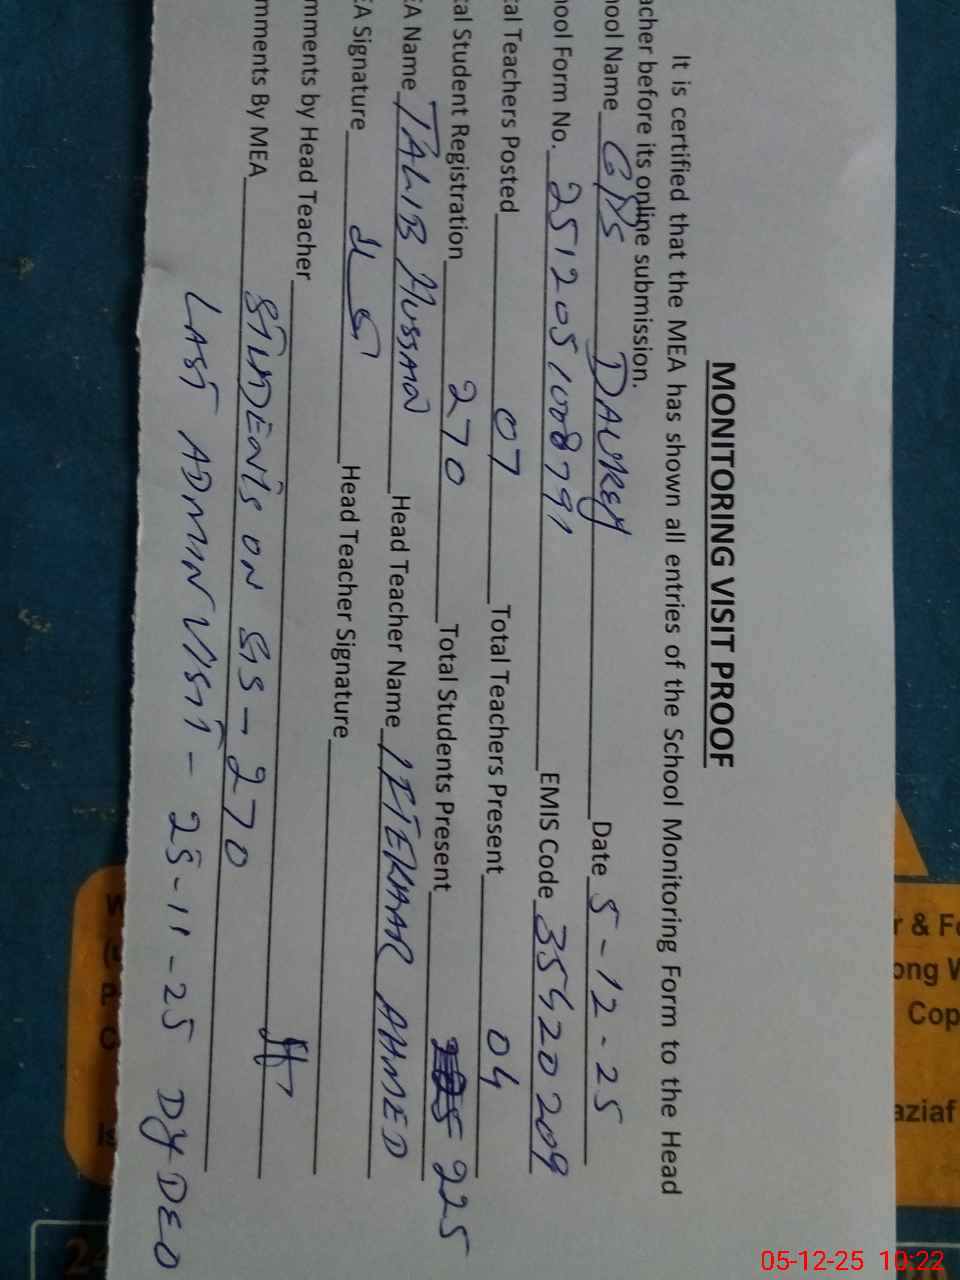 MONITORING VISIT PROOF
It is certified that the MEA has shown all entries of the School Monitoring Form to the Head
acher before its online submission.
ool Name GPS DAUREY Date 5-12-25
ool Form No. 2512051008791 EMIS Code 35420209
tal Teachers Posted 07 Total Teachers Present 04
tal Student Registration 270 Total Students Present 225
EA Name TALIB HUSSAIN Head Teacher Name IFTEKHAR AHMED
EA Signature Head Teacher Signature
mments by Head Teacher
mments By MEA STUDENTS ON SIS - 270
LAST ADMIN VISIT - 25-11-25 DY DEO
r & F
ong W
Cop
aziaf
05-12-25 10:22